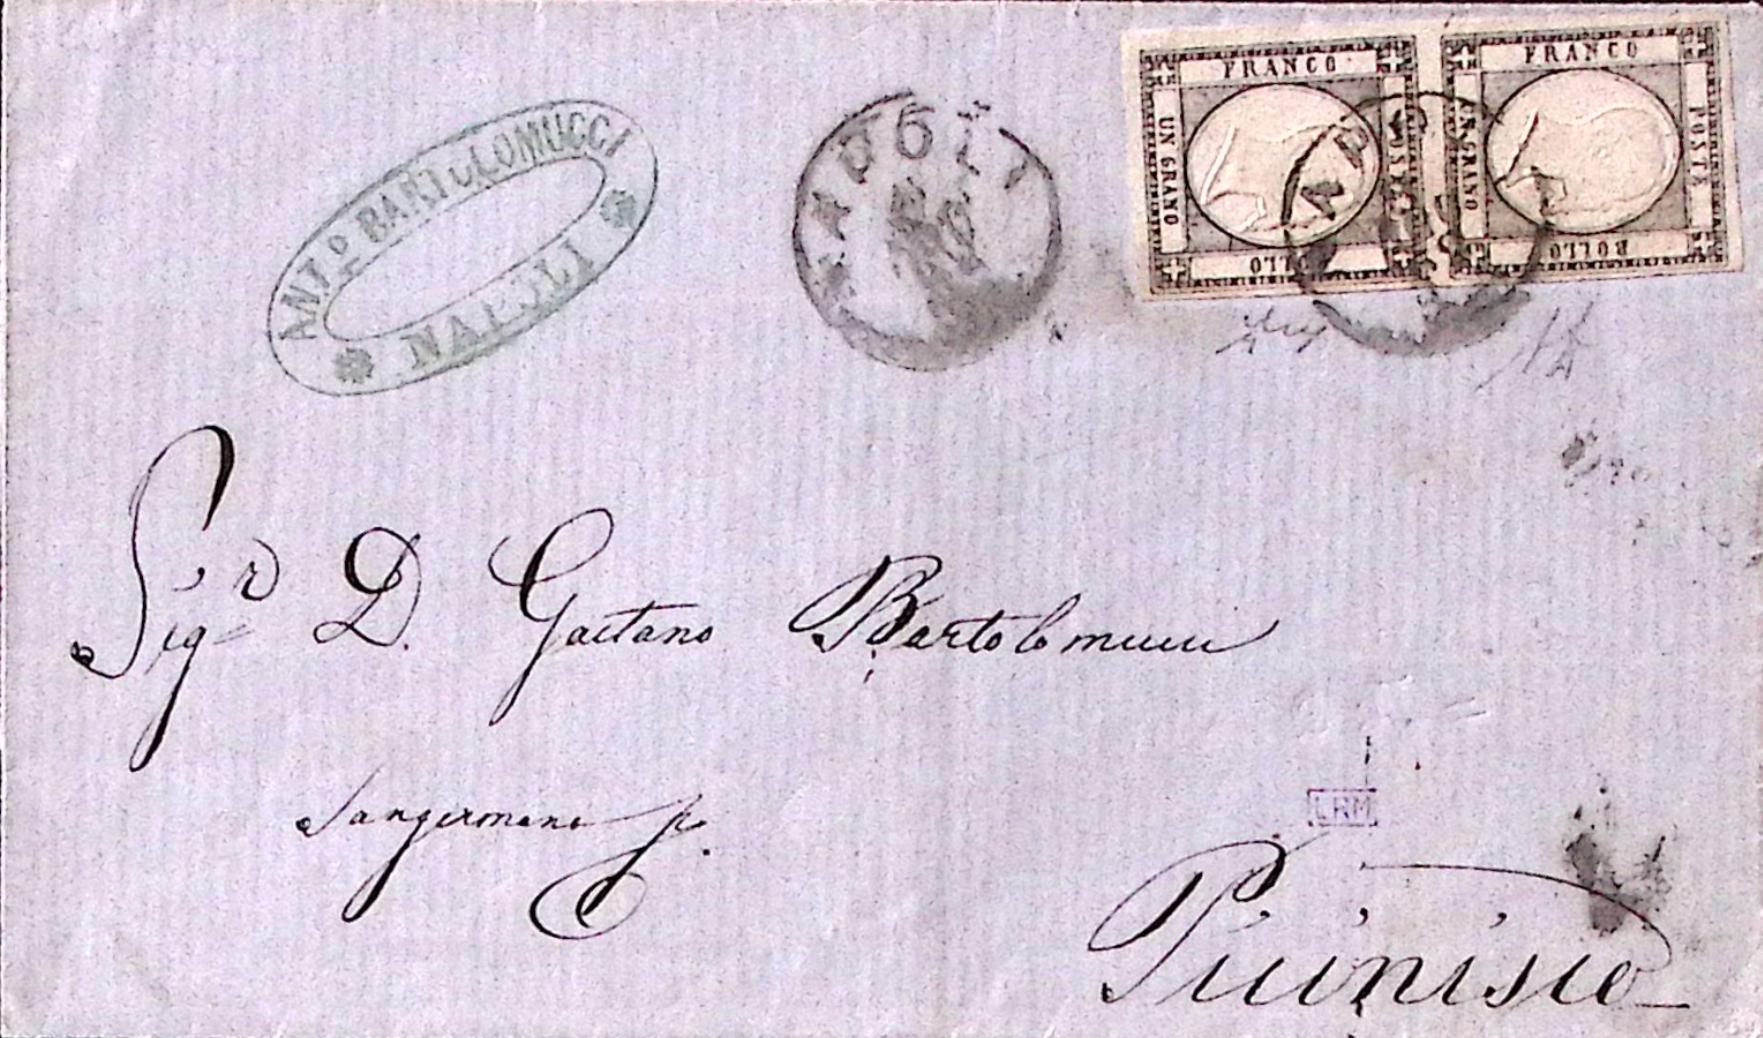 ANTº BARTOLOMUCCI
NAPOLI
NAPOLI
FRANCO
UN GRANO
POSTE
BOLLO
FRANCO
UN GRANO
POSTE
BOLLO
Sigr D. Gaetano Bartolomucci
Sangermano p.
LRM
Picinisco